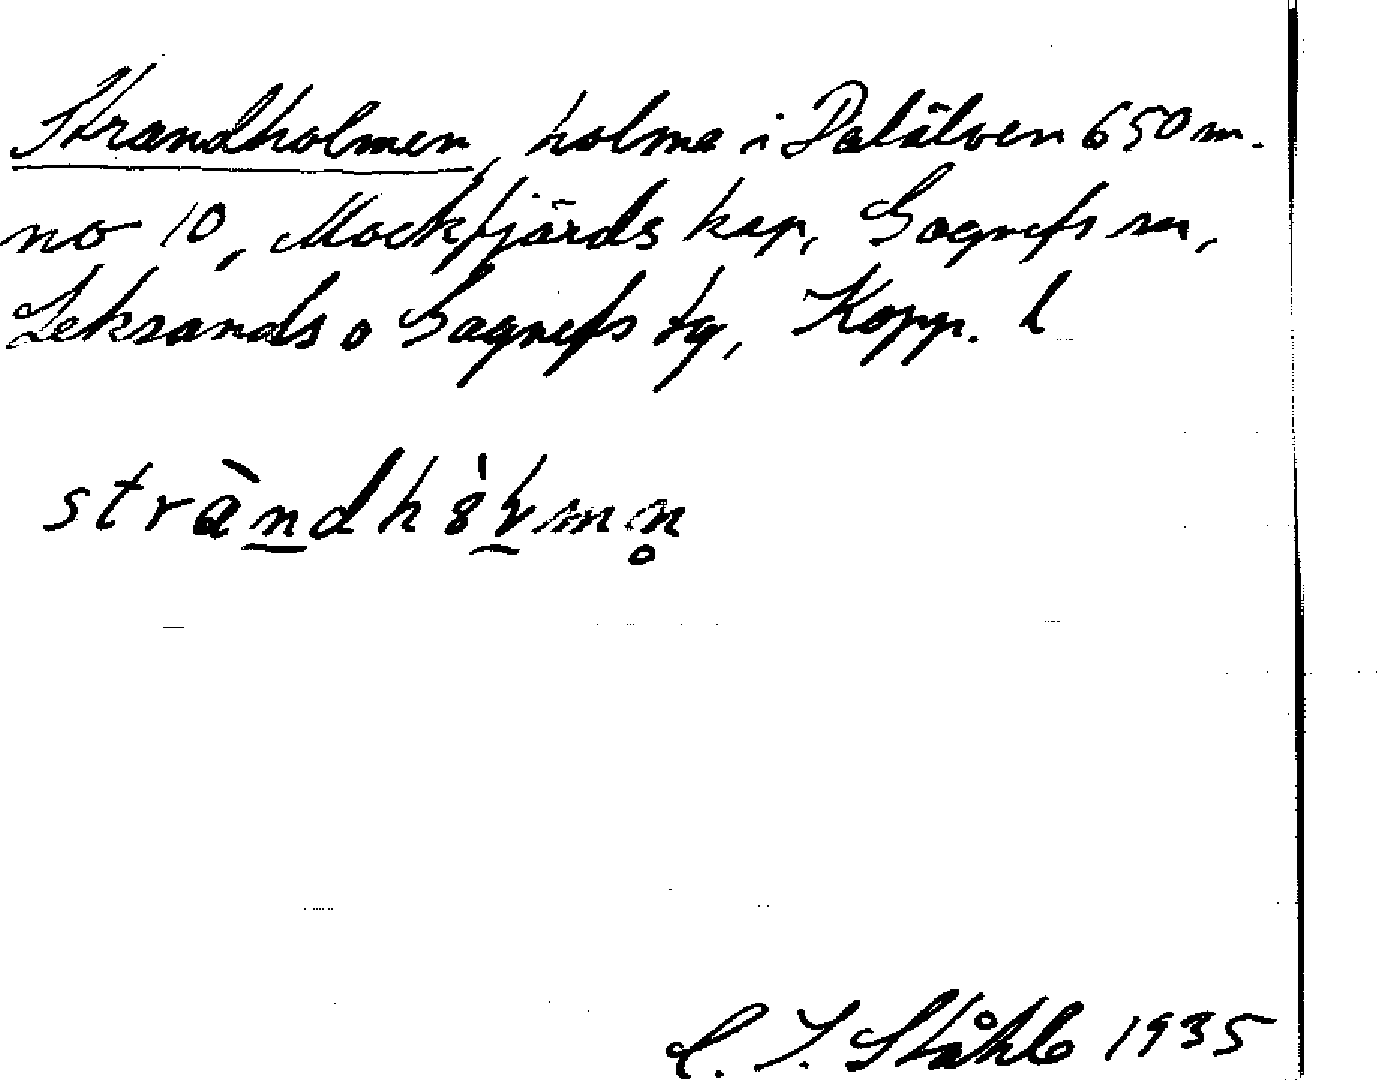 Strandholmen, holme i Dalälven 650 m.
no 10, Mockfjärds kap, Gagnefs sn,
Leksands o Gagnefs tg, Kopp. l
stràndhòlmn̥
C. I. Ståhle 1935